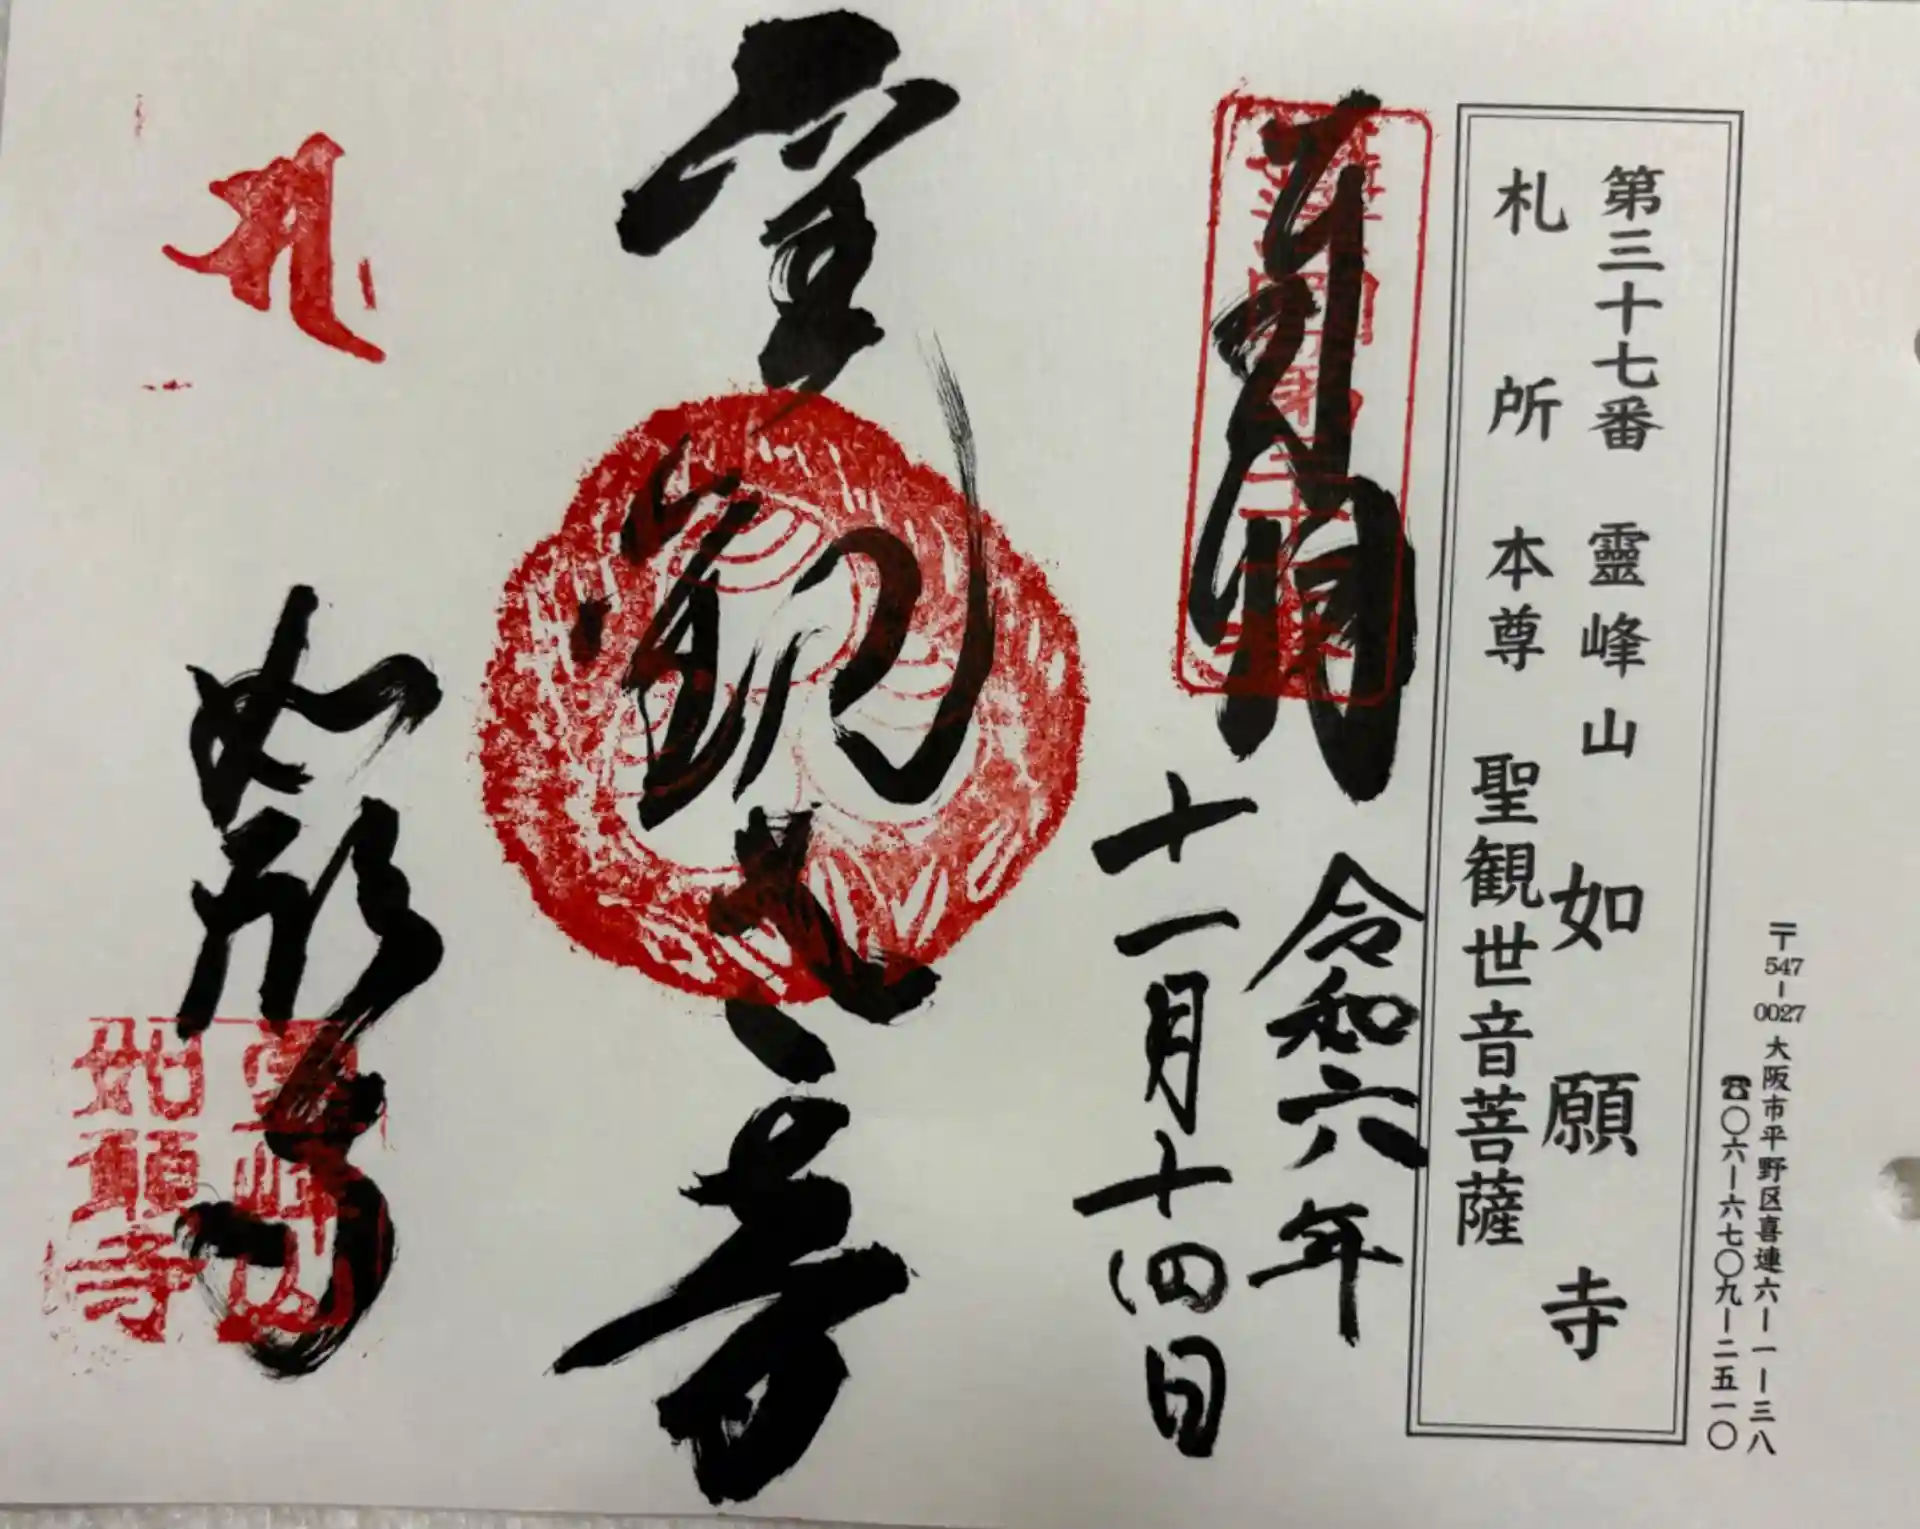 〒547-0027 大阪市平野区喜連六ー一ー三八
☎〇六ー六七〇九ー二五一〇
第三十七番 靈峰山 如願寺
札所本尊 聖観世音菩薩
奉拝
令和六年
十一月十四日
聖観世音
如願寺
靈峰山
如願寺